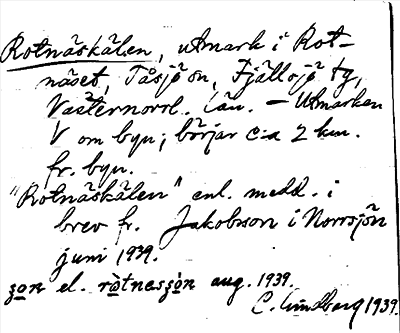 Rotnäskälen, utmark i Rot-
näset, Tåsjö sn, Fjällsjö tg,
Västernorrl. län. – Utmarken
V om byn; börjar c:a 2 km.
fr. byn.
"Rotnäskälen" enl. medd. i
brev fr. Jakobsson i Norrsjön
juni 1939.
el. aug. 1939.
C. Lindberg 1939.